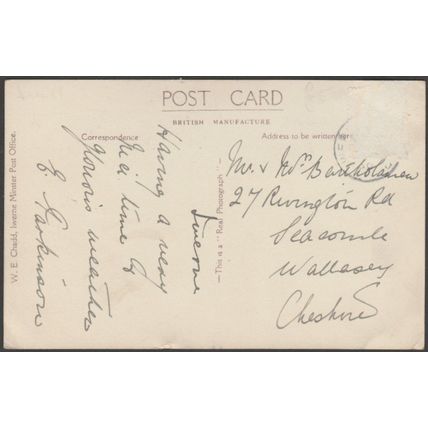 POST CARD
BRITISH MANUFACTURE
Correspondence
Address to be written here
Iwerne
Having a very
nice time &
glorious weather
E. Parkinson
Mr. & Mrs. Bartholomew
27 Rivington Rd
Seacombe
Wallasey
Cheshire
This is a "Real Photograph"
W. E. Chadd, Iwerne Minster Post Office.